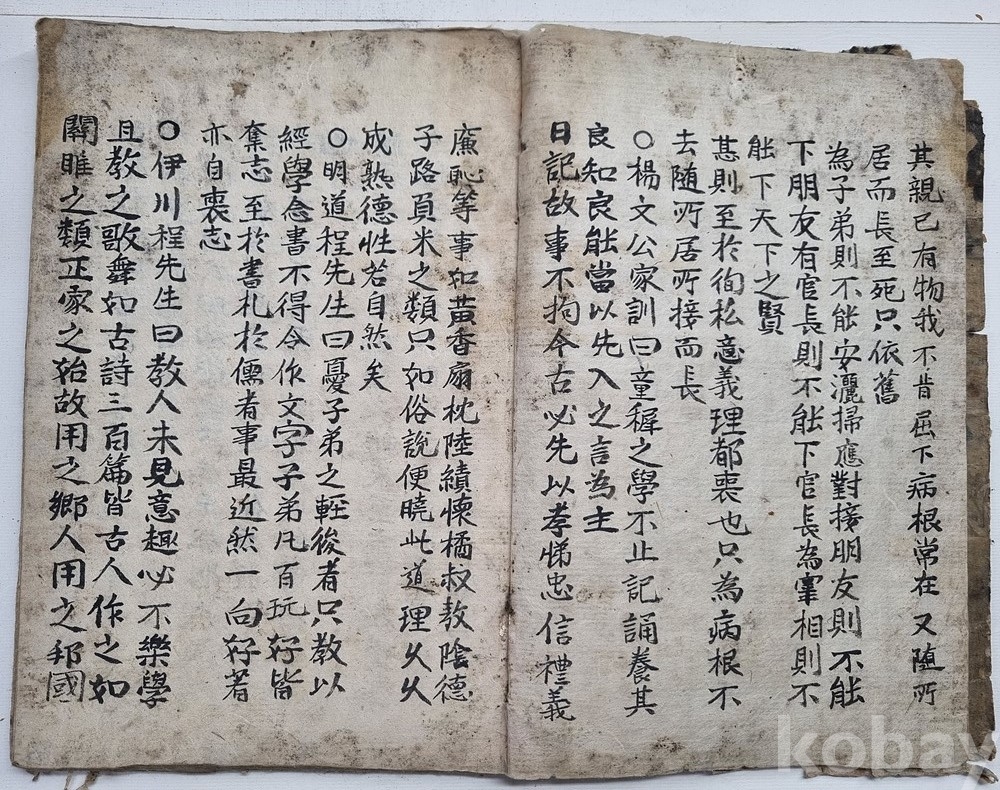 其親已有物我不肯屈下病根常在又随所
居而長至死只依舊
為子弟則不能安灑掃應對接朋友則不能
下朋友有官長則不能下官長為宰相則不
能下天下之賢
甚則至於徇私意義理都喪也只為病根不
去随所居所接而長
○楊文公家訓曰童穉之學不止記誦養其
良知良能當以先入之言為主
日記故事不拘今古必先以孝悌忠信禮義
廉恥等事如黃香扇枕陸績懷橘叔敖陰德
子路負米之類只如俗說便曉此道理久久
成熟德性若自然矣
○明道程先生曰憂子弟之輕後者只教以
經學念書不得令作文字子弟凡百玩好皆
奪志至於書札於儒者事最近然一向好著
亦自喪志
○伊川程先生曰教人未見意趣必不樂學
且教之歌舞如古詩三百篇皆古人作之如
關雎之類正家之始故用之鄉人用之邦國
kobay